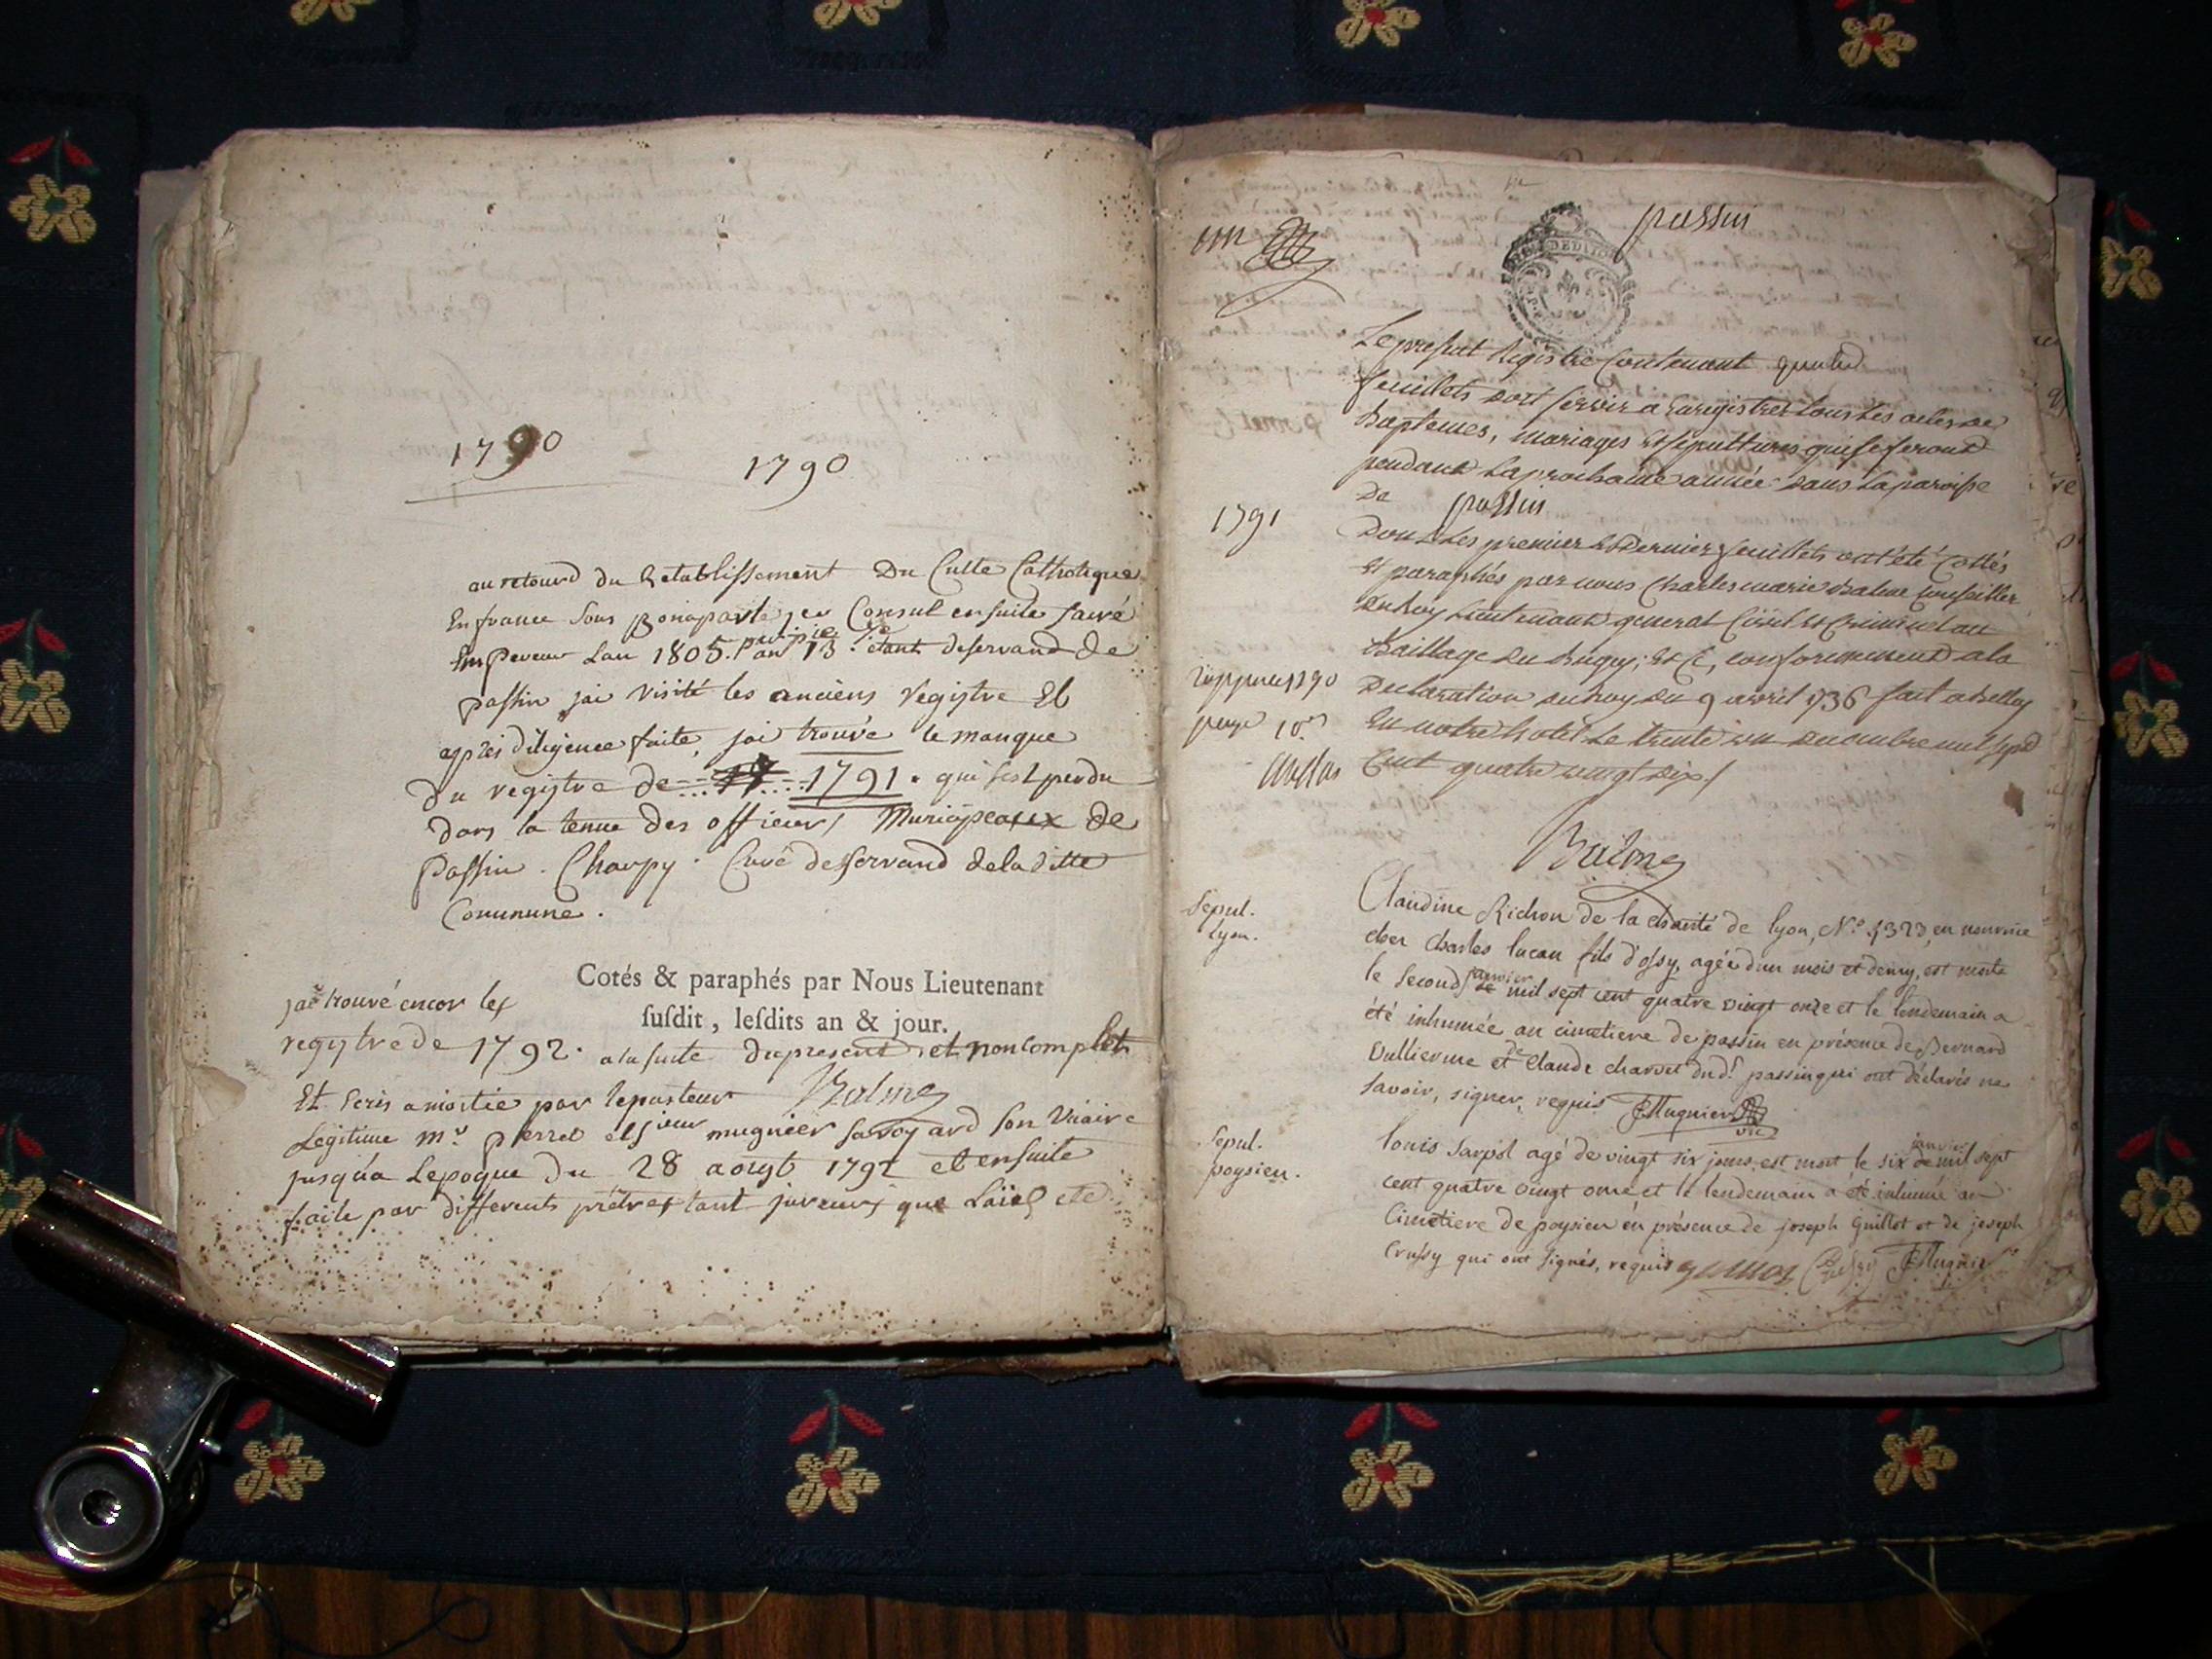 1790
1790
au retour du Retablissement Du Culte Catholique
En france Sous Bonaparte 1er Consul ensuite sacré
Empereur Lan 1805. l'an 13 étant deservand de
passin jai visité les anciens registre Et
après diligence faite, jai trouvé le manque
du registre de 1791. qui sest perdu
dans la tenue des officiers Municipeaux de
Passin. Charpy. Curé desservand de la ditte
Commune.
Cotés & paraphés par Nous Lieutenant
ſuſdit, leſdits an & jour.
jai trouvé encor les
registre de 1792. a la suite du present et non complet
Et Ecris a moitié par le pasteur Balme
Legitime mr. perret et sieur mugnier savoyard son vicaire
jusqua Lepoque du 28 aougt 1792 et ensuite
faite par differents prétres tant jureurs que Laics etc.
un
passin
DEDITION
Le present Registre Contenant
feuillets doit servir a Enregistrer tous les actes de
Baptemes, mariages et sepultures qui se feront
pendant La prochaine année dans la paroisse
De passin
1791
Dont Les premier et Dernier feuillets ont été Cottés
Et paraphés par nous Charles marie Balme Conseiller
du Roy Lieutenant general Civil et Criminel au
Bailliage du Bugey, et C, conformement a la
Declaration du Roy du 9 avril 1736 fait a Belley
En notre hotel Le trente un decembre mil sept
Cent quatre vingt dix
page 10
Balme
Sepul.
Lyon.
Claudine Richon de la charité de lyon, N.° 1323, en nourrice
cher charles lucan fils d'ossy, agée d'un mois et demy, est morte
le second janvier mil sept cent quatre vingt onze et le lendemain a
été inhumée au cimetiere de passin en présence de Bernard
Vullierme et de Claude charvet dud.t passin qui ont déclarés ne
savoir, signer, requis JMugnier vic
Sepul.
poysieu.
louis sarpol agé de vingt six jours, est mort le six janvier mil sept
cent quatre vingt onze et le lendemain a été inhumé au
Cimetiere de poysieu en présence de joseph guillot et de joseph
Crussy qui ont signés, requis guillot Crussy JMugnier